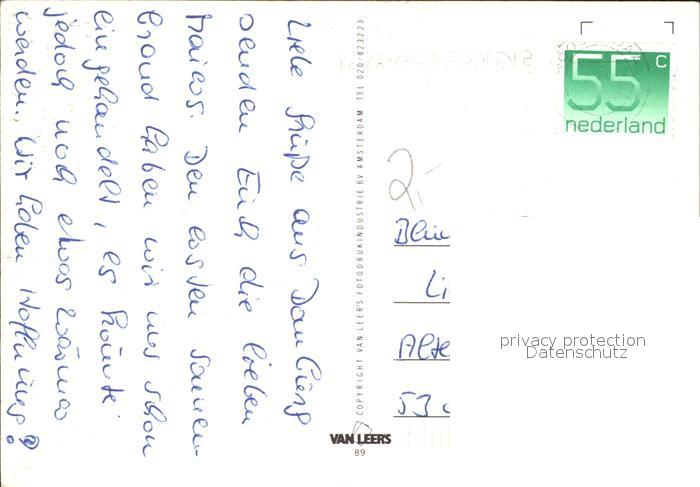 Liebe Grüße aus Domburg
senden Euch die lieben
Maikes. Den ersten Sonnen-
brand haben wir uns schon
eingehandelt, es könnte
jedoch noch etwas wärmer
werden. Wir haben Hoffnung!
COPYRIGHT VAN LEER'S FOTODRUKINDUSTRIE BV AMSTERDAM TEL 020-823223
VAN LEER'S
89
55 c
nederland
2,-
Li
Alte
53
privacy protection
Datenschutz